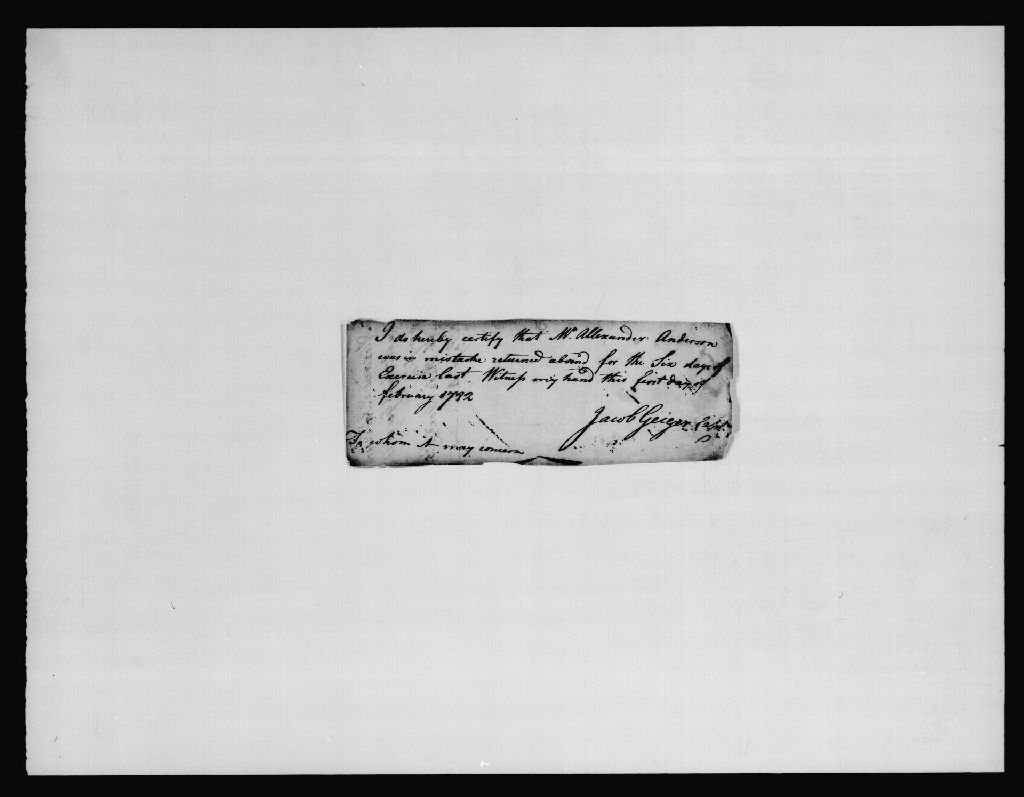 I do hereby certify that Mr. Allexander Anderson
was in mistacke returned absend for the Six days of
Exercise last. Witness my hand this first day of
february 1792
Jacob Geiger Capt.
To whom it may concern